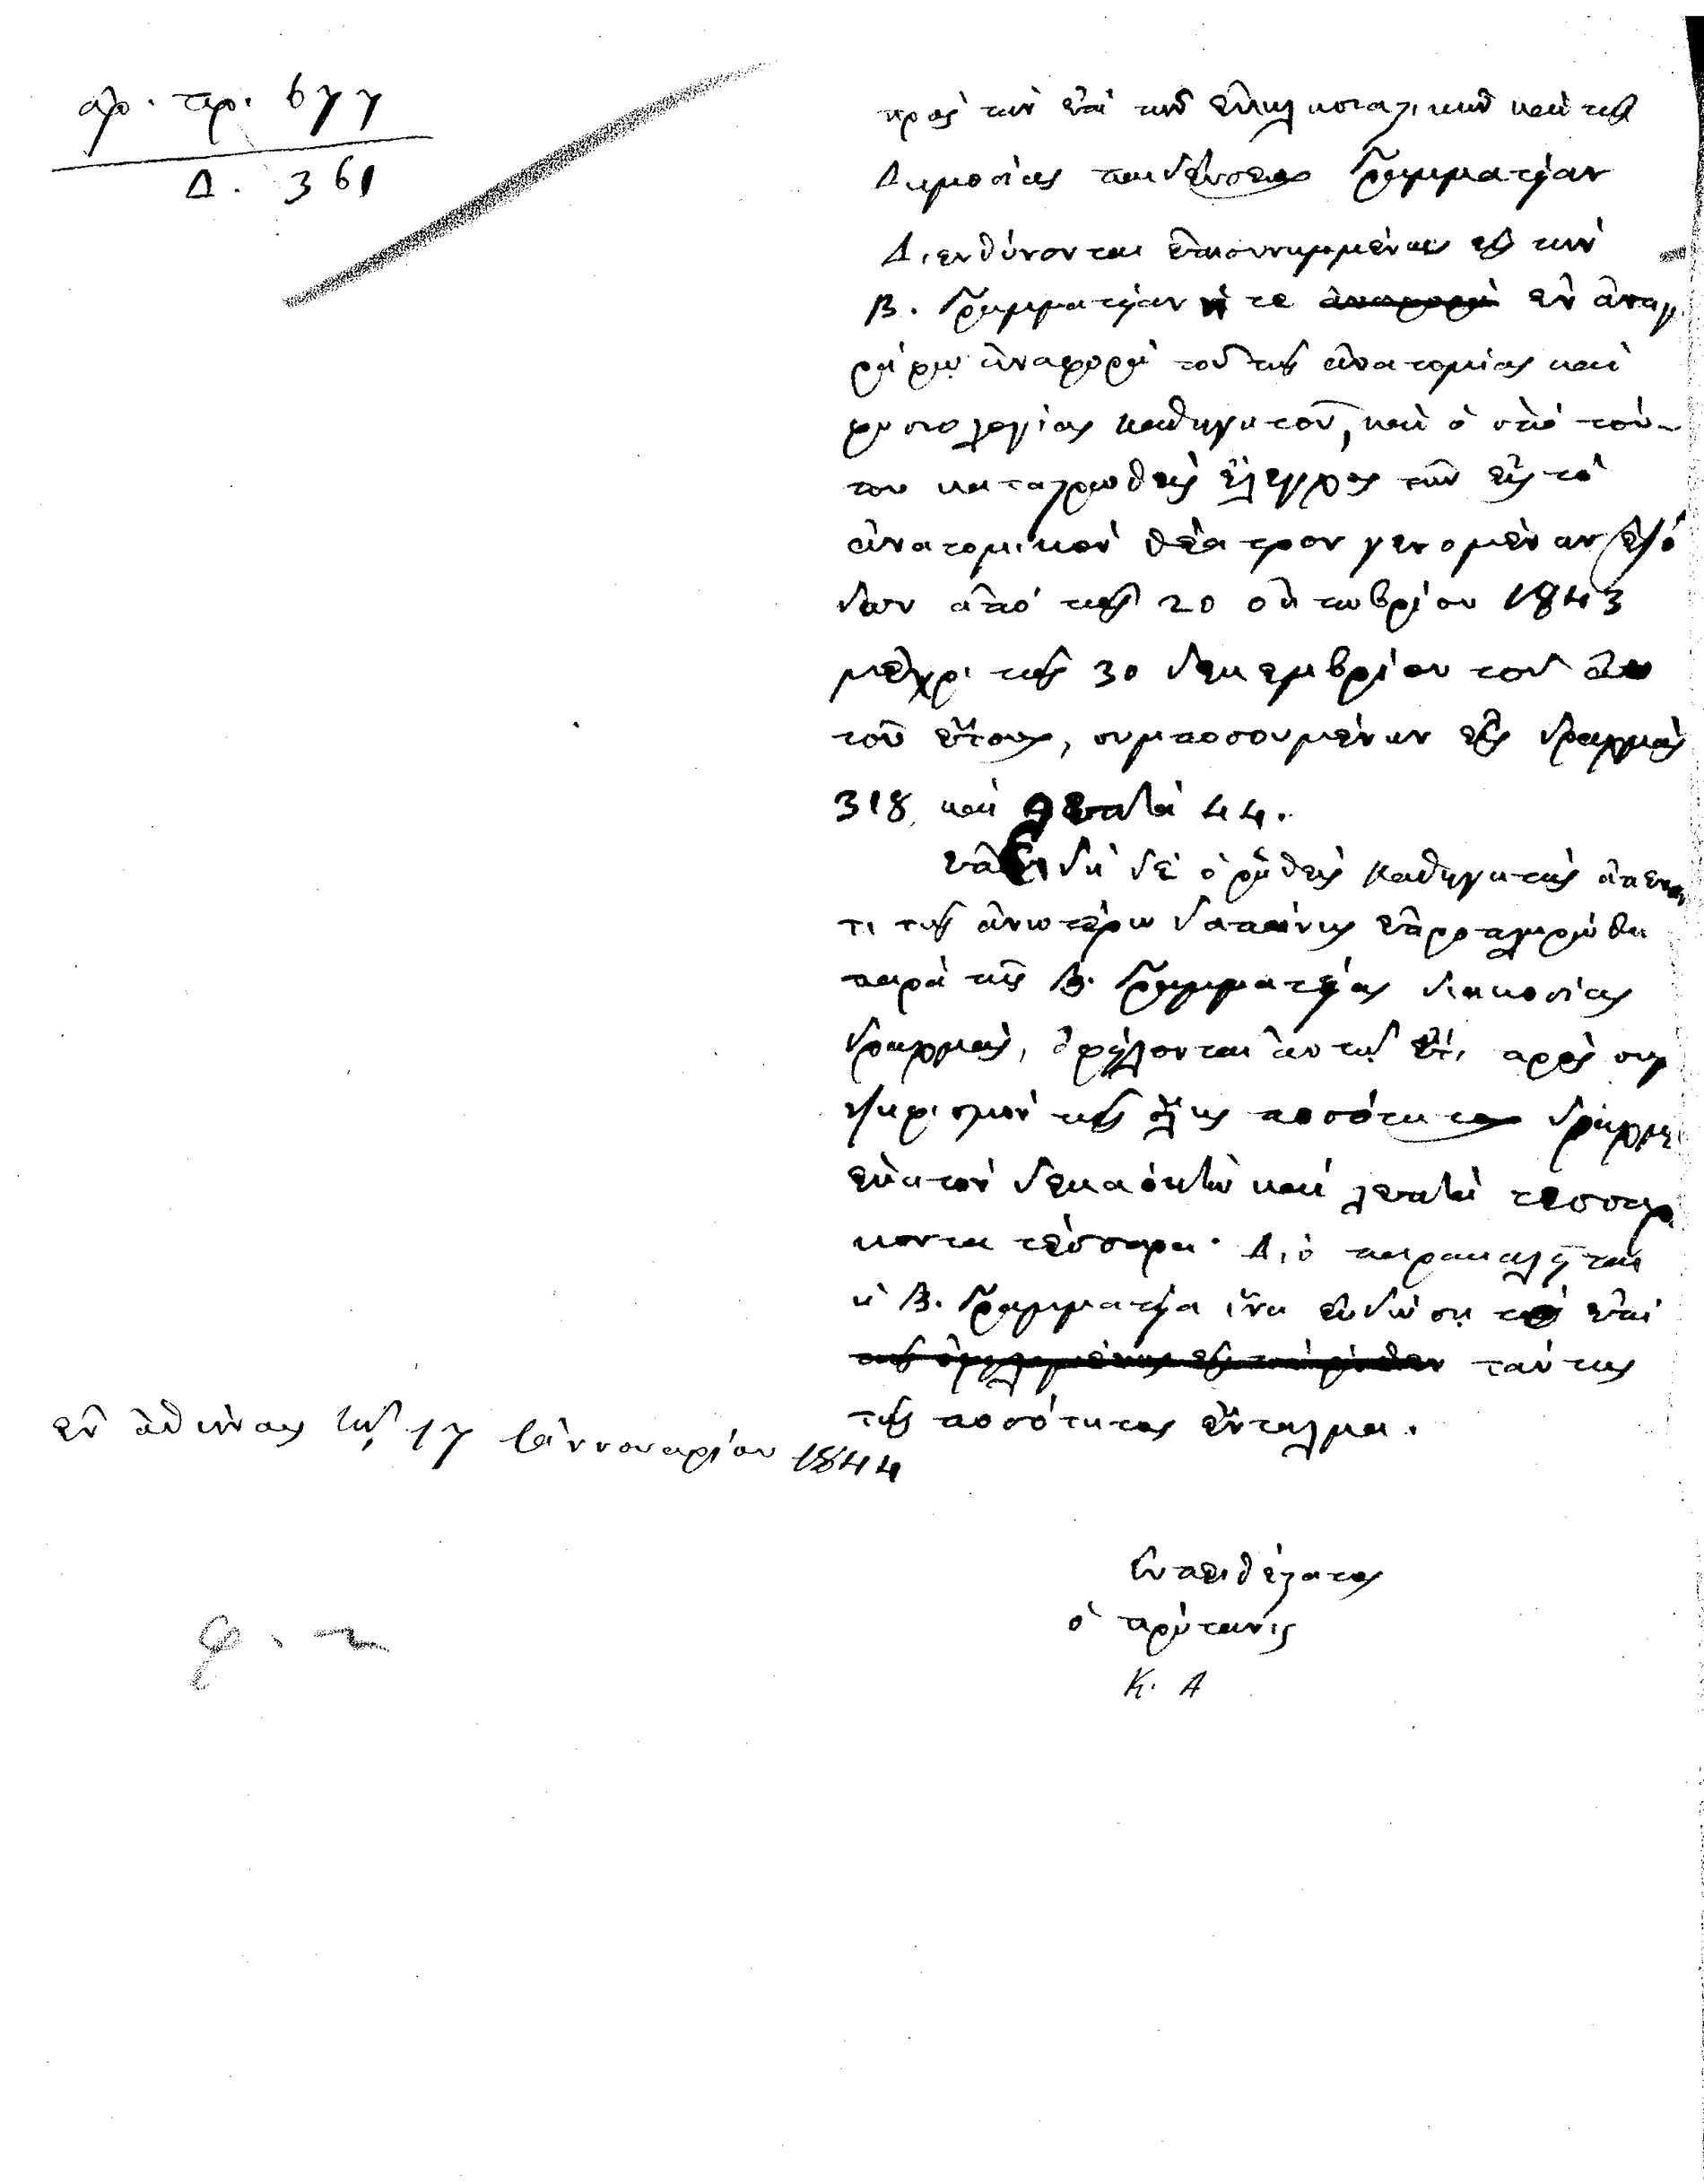 ἀρ. πρ. 677
Δ. 361
πρὸς τὴν ἐπὶ τῶν ἐκκλησιαστικῶν καὶ τῆς
Δημοσίας παιδεύσεως Γραμματείαν
Διευθύνονται ἐπισυνημμένως εἰς τὴν
Β. Γραμματείαν ἥ τε ἀναφορὰ ἐν ἀντιγ
ράφῳ ἀναφορὰ τοῦ τῆς ἀνατομίας καὶ
φυσιολογίας καθηγητοῦ, καὶ ὁ ὑπὸ τού-
του καταστρωθεὶς ἔλεγχος τῶν εἰς τὸ
ἀνατομικὸν θέατρον γενομένων ἐξό
δων ἀπὸ τῆς 20 ὀκτωβρίου 1843
μέχρι τῆς 30 δεκεμβρίου τοῦ αὐ
τοῦ ἔτους, συμποσουμένων εἰς δραχμὰς
318 καὶ λεπτὰ 44.
ἐπειδὴ δὲ ὁ ῥηθεὶς καθηγητὴς ἀπέναν
τι τῆς ἀνωτέρω δαπάνης ἐπροπληρώθη
παρὰ τῆς Β. Γραμματείας διακοσίας
δραχμὰς, ὀφείλονται αὐτῷ ἔτι πρὸς συμ
ψηφισμὸν τῆς ὅλης ποσότητος δραχμαὶ
ἑκατὸν δεκαόκτω καὶ λεπτὰ τεσσαρά
κοντα τέσσαρα. Διὸ παρακαλεῖται
ἡ Β. Γραμματεία ἵνα ἐκδώσῃ τὸ ἐπὶ
ταύτης
τῆς ποσότητος ἔνταλμα.
ἐν ἀθήναις τῇ 17 ἰαννουαρίου 1844
Εὐπειθέστατος
ὁ πρύτανις
Κ. Α
Φ.